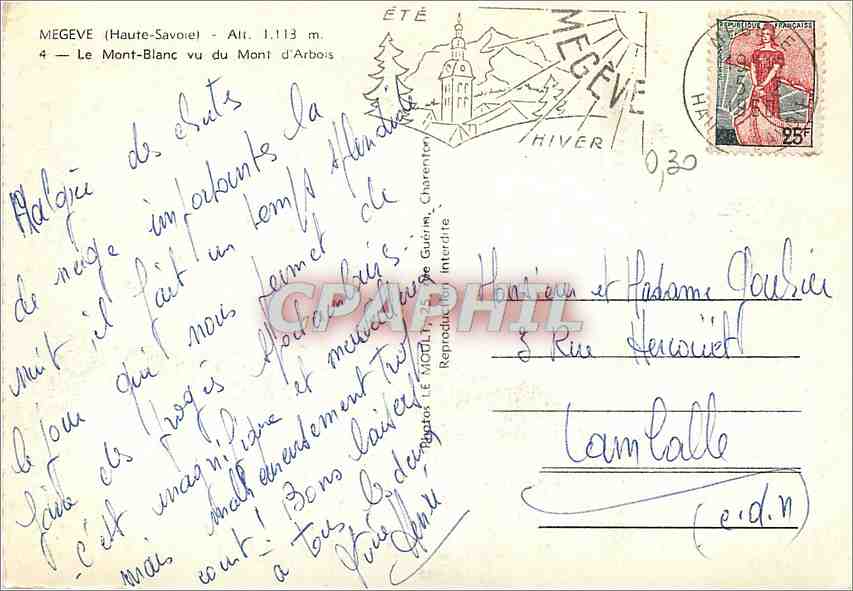 MEGEVE (Haute-Savoie) - Alt. 1.113 m.
4 — Le Mont-Blanc vu du Mont d'Arbois
ÉTÉ
MEGÈVE
HIVER
REPUBLIQUE FRANÇAISE
25F
0,30
Malgré des chutes
de neige importantes la
nuit il fait un temps splendide
le jour qui nous permet de
faire des progrès
c'est magnifique et merveilleux
mais malheureusement trop
court! Bons baisers
a tous les deux
Hervé
Photos LE MOULT, 25, de Guérin, Charenton
Reproduction interdite
CPAPHIL
Monsieur et Madame
3 Rue Hercouët
Lamballe
(c.d.n)